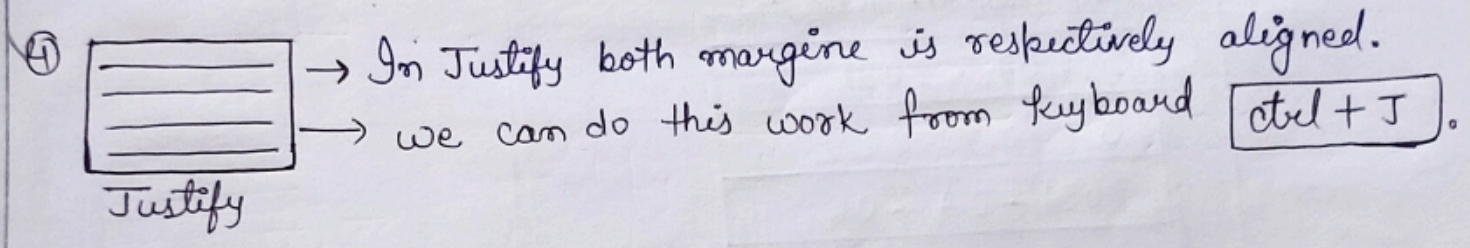 ④ → In Justify both margine is respectively aligned.
→ we can do this work from keyboard ctrl + J.
Justify